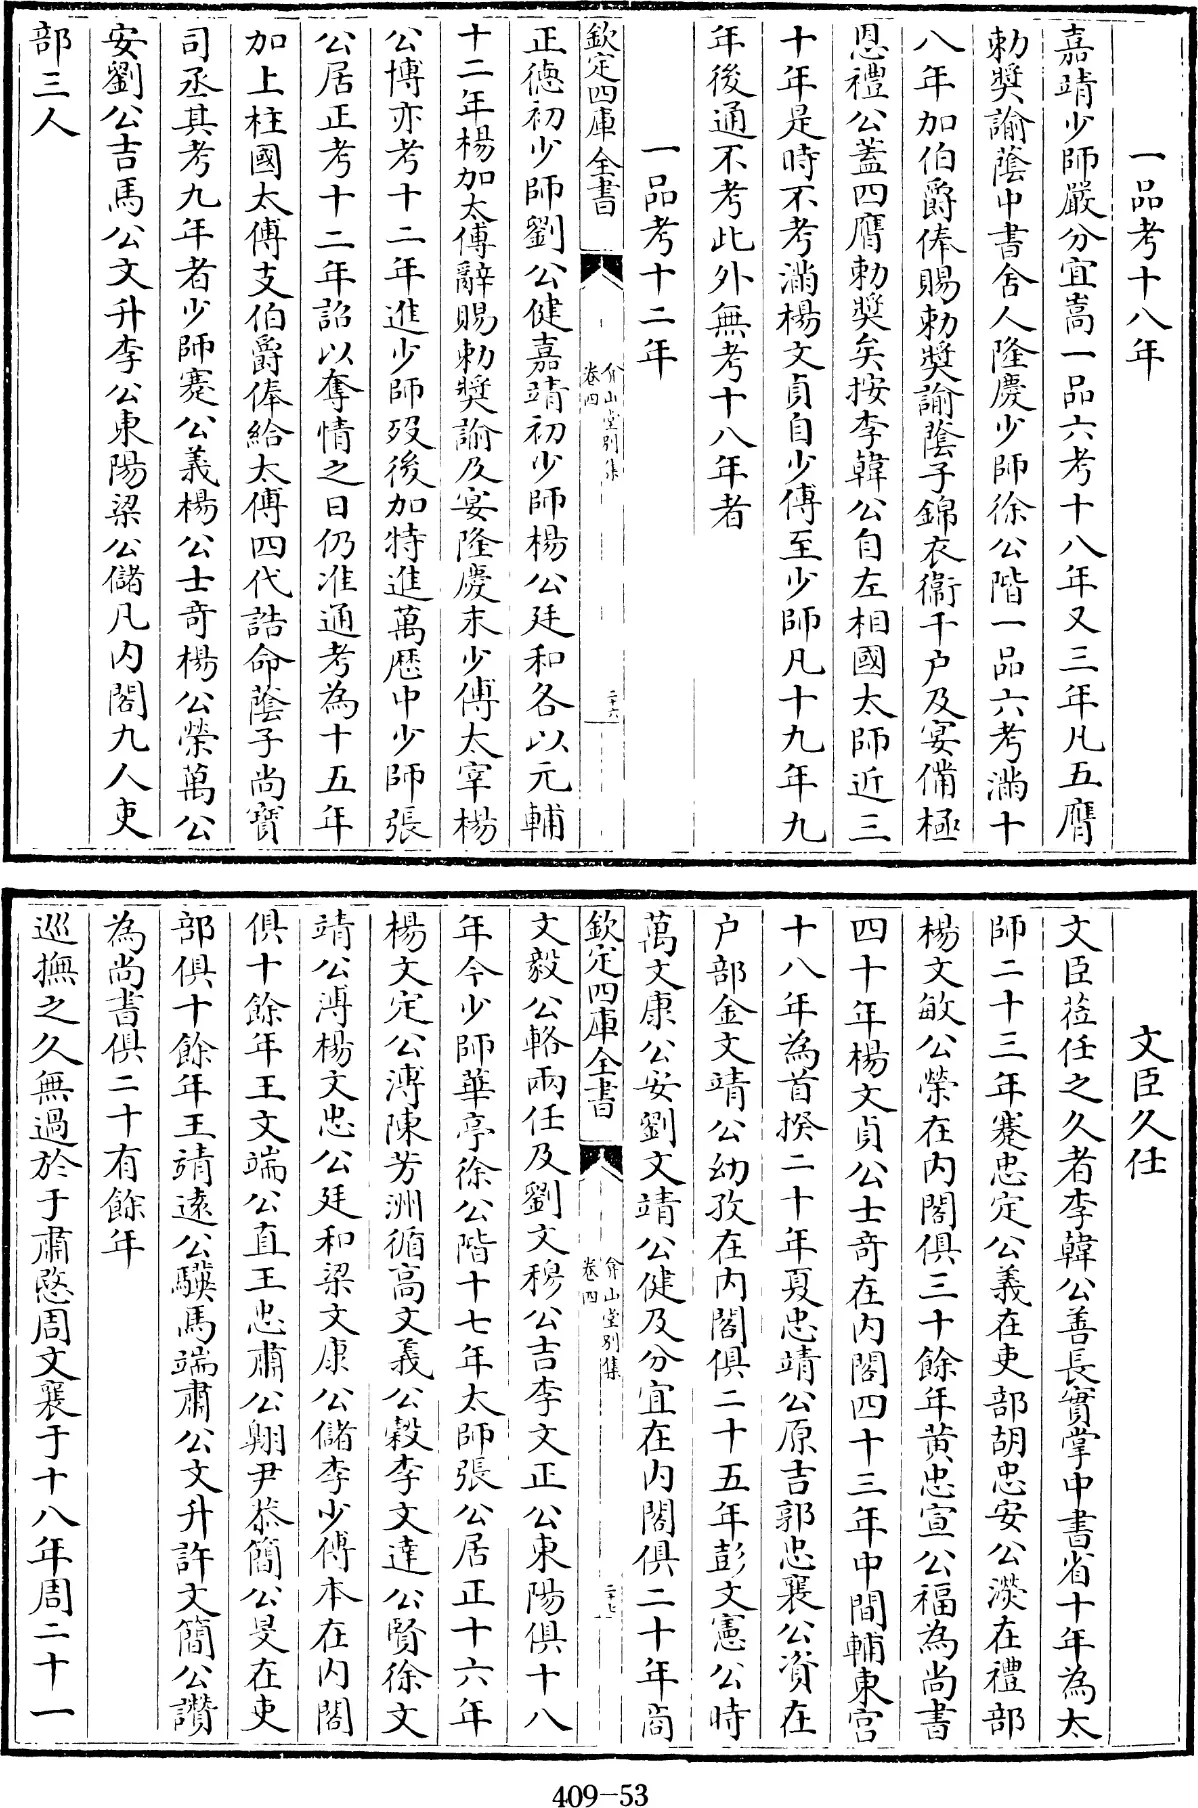 一品考十八年
嘉靖少師嚴分宜嵩一品六考十八年又三年凡五膺
勅奬諭蔭中書舍人隆慶少師徐公階一品六考滿十
八年加伯爵俸賜勅奬諭蔭子錦衣衛千户及宴備極
恩禮公蓋四膺勅奬矣按李韓公自左相國太師近三
十年是時不考滿楊文貞自少傅至少師凡十九年九
年後通不考此外無考十八年者
一品考十二年
欽定四庫全書
弇山堂别集
卷四
二十六
正德初少師劉公健嘉靖初少師楊公廷和各以元輔
十二年楊加太傅辭賜勅奬諭及宴隆慶末少傅太宰楊
公博亦考十二年進少師歿後加特進萬歷中少師張
公居正考十二年詔以奪情之日仍准通考為十五年
加上柱國太傅支伯爵俸給太傅四代誥命蔭子尚寳
司丞其考九年者少師蹇公義楊公士奇楊公榮萬公
安劉公吉馬公文升李公東陽梁公儲凡内閣九人吏
部三人
文臣久任
文臣莅任之久者李韓公善長實掌中書省十年為太
師二十三年蹇忠定公義在吏部胡忠安公濙在禮部
楊文敏公榮在内閣俱三十餘年黄忠宣公福為尚書
四十年楊文貞公士奇在内閣四十三年中間輔東宫
十八年為首揆二十年夏忠靖公原吉郭忠襄公資在
户部金文靖公幼孜在内閣俱二十五年彭文憲公時
萬文康公安劉文靖公健及分宜在内閣俱二十年商
欽定四庫全書
弇山堂别集
卷四
二十七
文毅公輅兩任及劉文穆公吉李文正公東陽俱十八
年今少師華亭徐公階十七年太師張公居正十六年
楊文定公溥陳芳洲循高文義公穀李文達公賢徐文
靖公溥楊文忠公廷和梁文康公儲李少傅本在内閣
俱十餘年王文端公直王忠肅公翺尹恭簡公旻在吏
部俱十餘年王靖逺公驥馬端肅公文升許文簡公讚
為尚書俱二十有餘年
巡撫之久無過於于肅愍周文襄于十八年周二十一
409-53